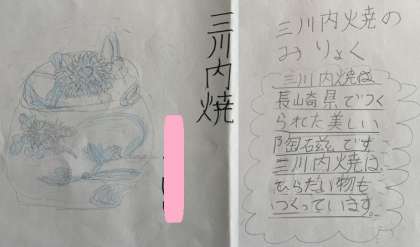 三川内焼
三川内火焼の
みりょく
三川内火焼は
長山崎県でつく
られた美しい
陶磁です
三川内火焼は
ひらたい物も
つくっています。